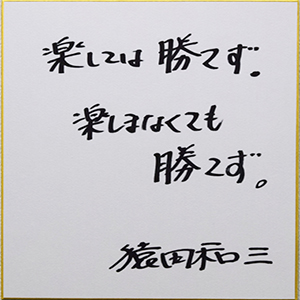 楽しては勝てず。
楽しまなくても
勝てず。
猿田和三